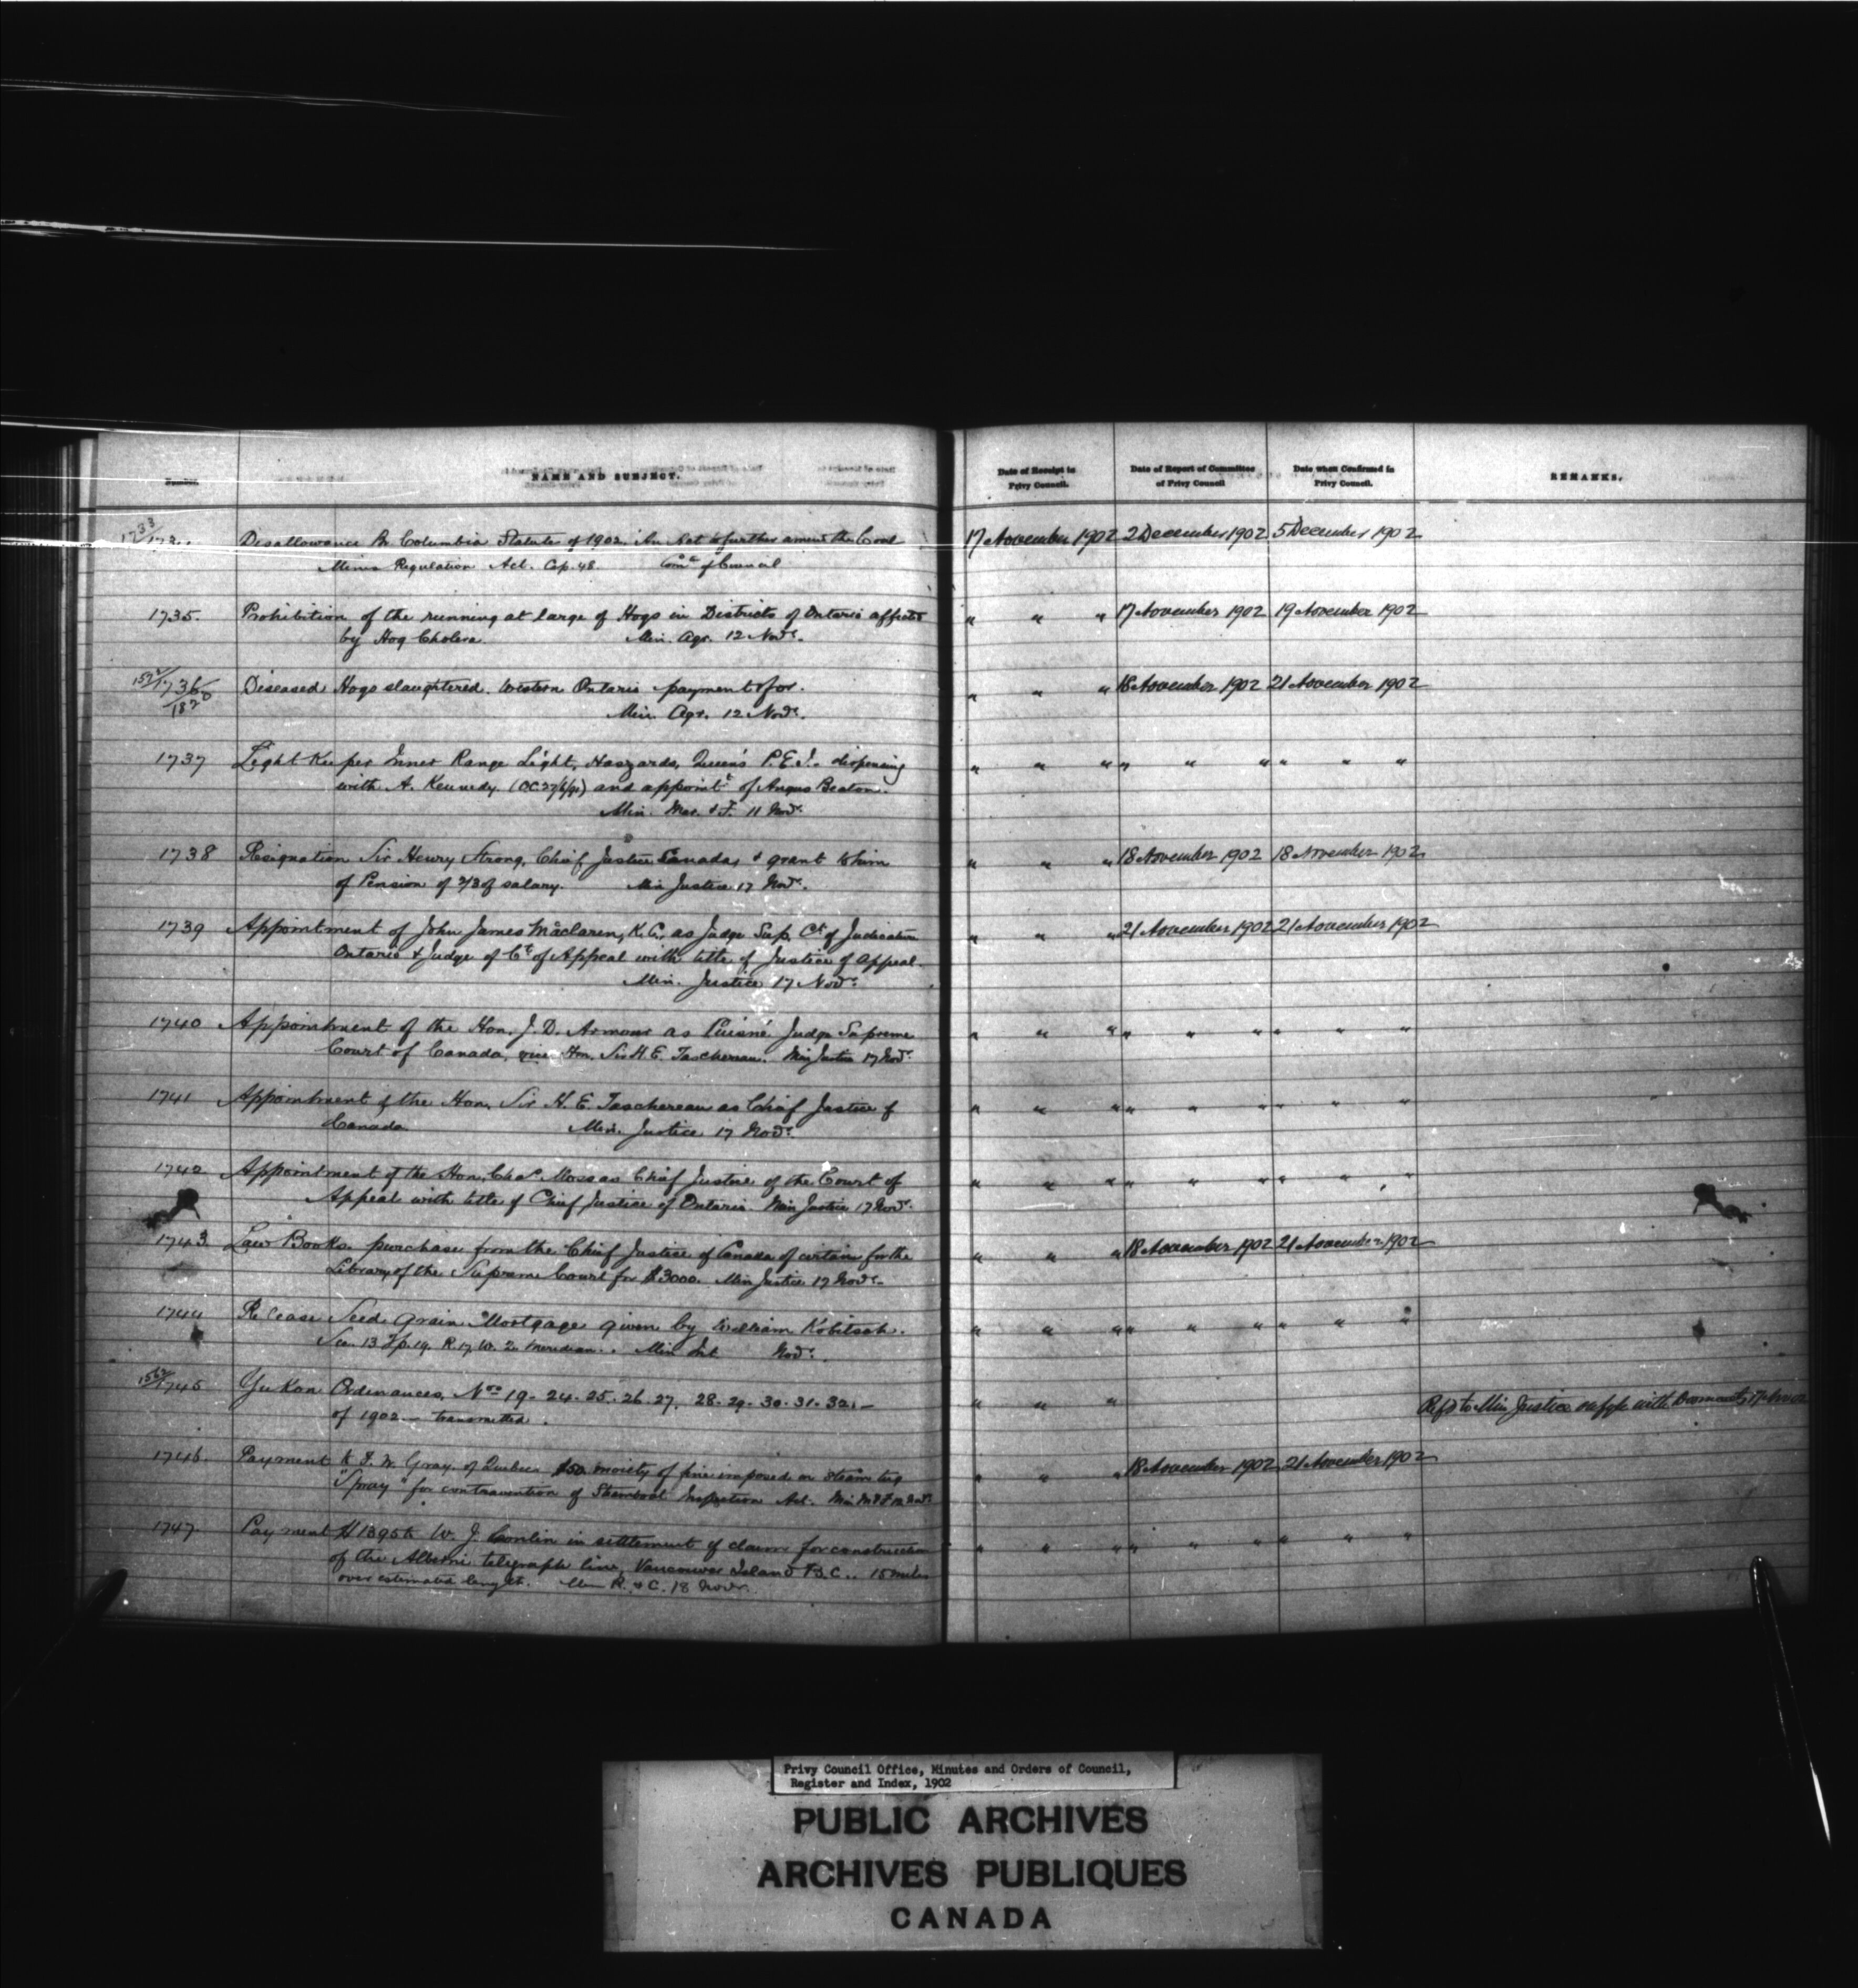 Number.
NAME AND SUBJECT.
Date of Receipt in Privy Council.
Date of Report of Committee of Privy Council
Date when Confirmed in Privy Council.
REMARKS.
1733
Disallowance Br Columbia Statute of 1902. An Act to further amend the Coal 17 November 1902 2 December 1902 5 December 1902
Mines Regulation Act. Cap. 48. Comee of Council
1735. Prohibition of the running at large of Hogs in Districts of Ontario affected " " " 17 November 1902 19 November 1902
by Hog Cholera. Min. Agr. 12 Novr.
1736 Diseased Hogs slaughtered. Western Ontario payment of for. " " 18 November 1902 21 November 1902
1820 Min. Agr. 12 Novr.
1737 Light Keeper Inner Range Light, Haszards, Queen's P.E.I. dispensing " " " " " " " " "
with A. Kennedy. and appointt of Angus Beaton.
Min. Mar. & F. 11 Novr.
1738 Resignation Sir Henry Strong, Chief Justice Canada, & grant to him " " " 18 November 1902 18 November 1902
of Pension of 2/3 of salary. Min Justice 17 Novr.
1739 Appointment of John James Maclaren, K.C., as Judge Sup. Ct of Judicature " " " 21 November 1902 21 November 1902
Ontario & Judge of Ct of Appeal with title of Justice of Appeal.
Min. Justice 17 Novr.
1740 Appointment of the Hon. J. D. Armour as Puisné Judge Supreme " " " " " " " " "
Court of Canada, vice Hon. Sir H. E. Taschereau. Min Justice 17 Novr.
1741 Appointment of the Hon. Sir H. E. Taschereau as Chief Justice of " " " " " " " " "
Canada Min. Justice 17 Novr.
1742 Appointment of the Hon. Chas. Moss as Chief Justice of the Court of " " " " " " " " "
Appeal with title of Chief Justice of Ontario. Min Justice 17 Novr.
1743. Law Books. purchase from the Chief Justice of Canada of certain for the " " " 18 November 1902 21 November 1902
Library of the Supreme Court for $3000. Min Justice 17 Novr.
1744 Release Seed Grain Mortgage given by William Kobitsch. " " " " " " " " "
Sec. 13 Tp. 19. R. 17 W. 2 Meridian. Min Int Novr.
1745 Yukon Ordinances, Nos 19- 24- 25- 26- 27. 28- 29- 30- 31- 32. " " " Refd to Min Justice
of 1902 - transmitted.
1746. Payment to F. W. Gray of Quebec $50 moiety of fine imposed on steam tug " " " 18 November 1902 21 November 1902
"Spray" for contravention of Steamboat Inspection Act. Min M & F 12 Novr.
1747. Payment $1395 to W. J. Conlin in settlement of claim for construction " " " " " " " " "
of the Alberni telegraph line, Vancouver Island B.C. 15 miles
over estimated length. Min R. & C. 18 Novr.
Privy Council Office, Minutes and Orders of Council,
Register and Index, 1902
PUBLIC ARCHIVES
ARCHIVES PUBLIQUES
CANADA